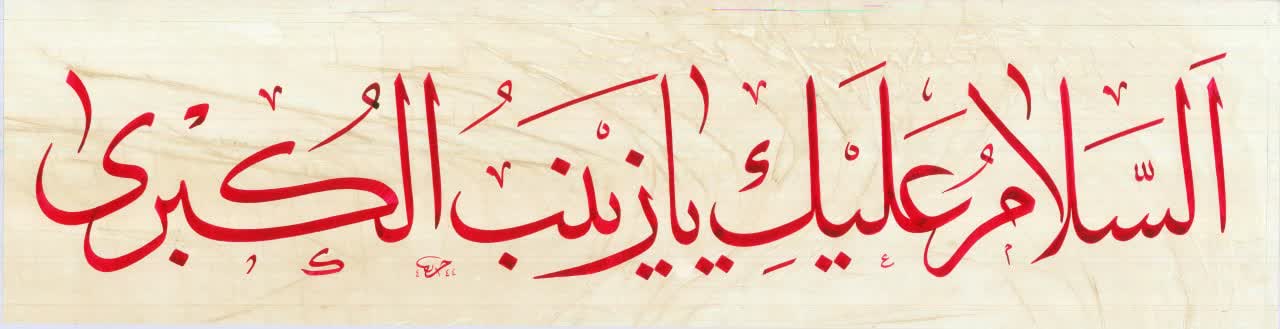 اَلسَّلامُ عَلَيْكِ يا زَيْنَبُ الْكُبْرى